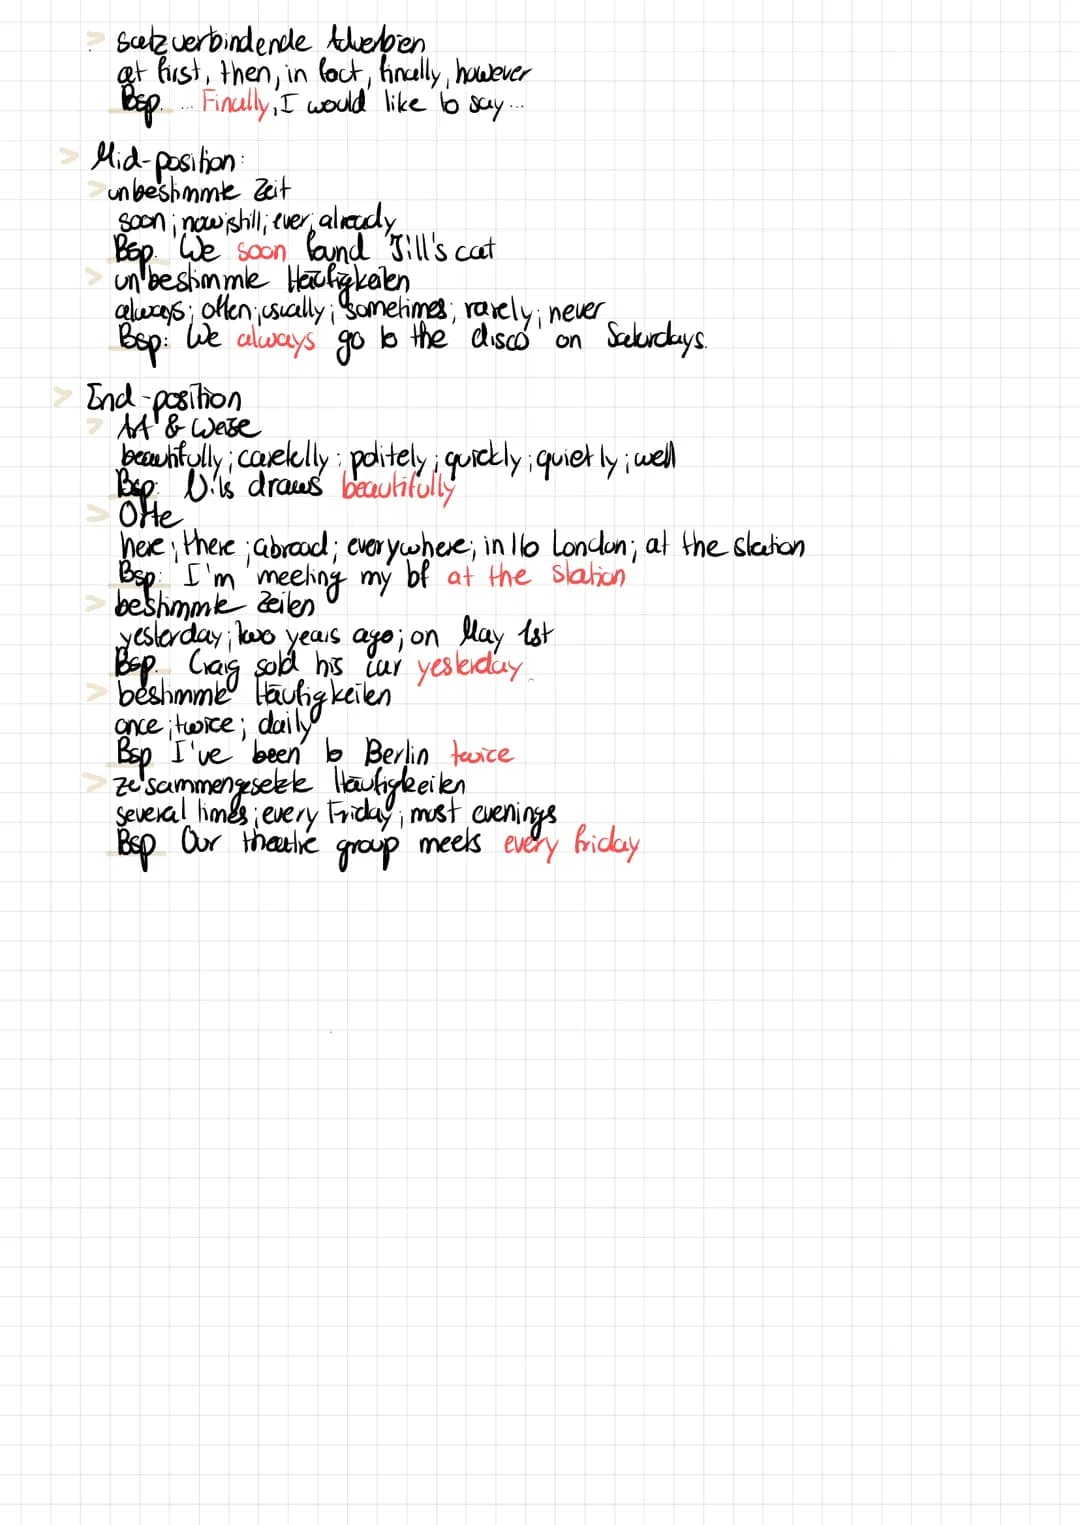 > satzverbindende Adverbien
at first, then, in fact, finally, however
Bsp. ... Finally, I would like to say...
> Mid-position:
> unbestimmte Zeit
soon; now; still; ever; already
Bsp. We soon found Jill's cat
> unbestimmte Häufigkeiten
always; often; usually; sometimes; rarely; never
Bsp: We always go to the disco on Saturdays.
> End-position
> Art & Weise
beautifully; carefully; politely; quickly; quietly; well
Bsp: Nils draws beautifully
> Orte
here; there; abroad; everywhere; in/to London; at the station
Bsp: I'm meeting my bf at the station
> bestimmte Zeiten
yesterday; two years ago; on May 1st
Bsp. Craig sold his car yesterday.
> bestimmte Häufigkeiten
once; twice; daily
Bsp I've been to Berlin twice
> zusammengesetzte Häufigkeiten
several times; every Friday; most evenings
Bsp Our theatre group meets every friday